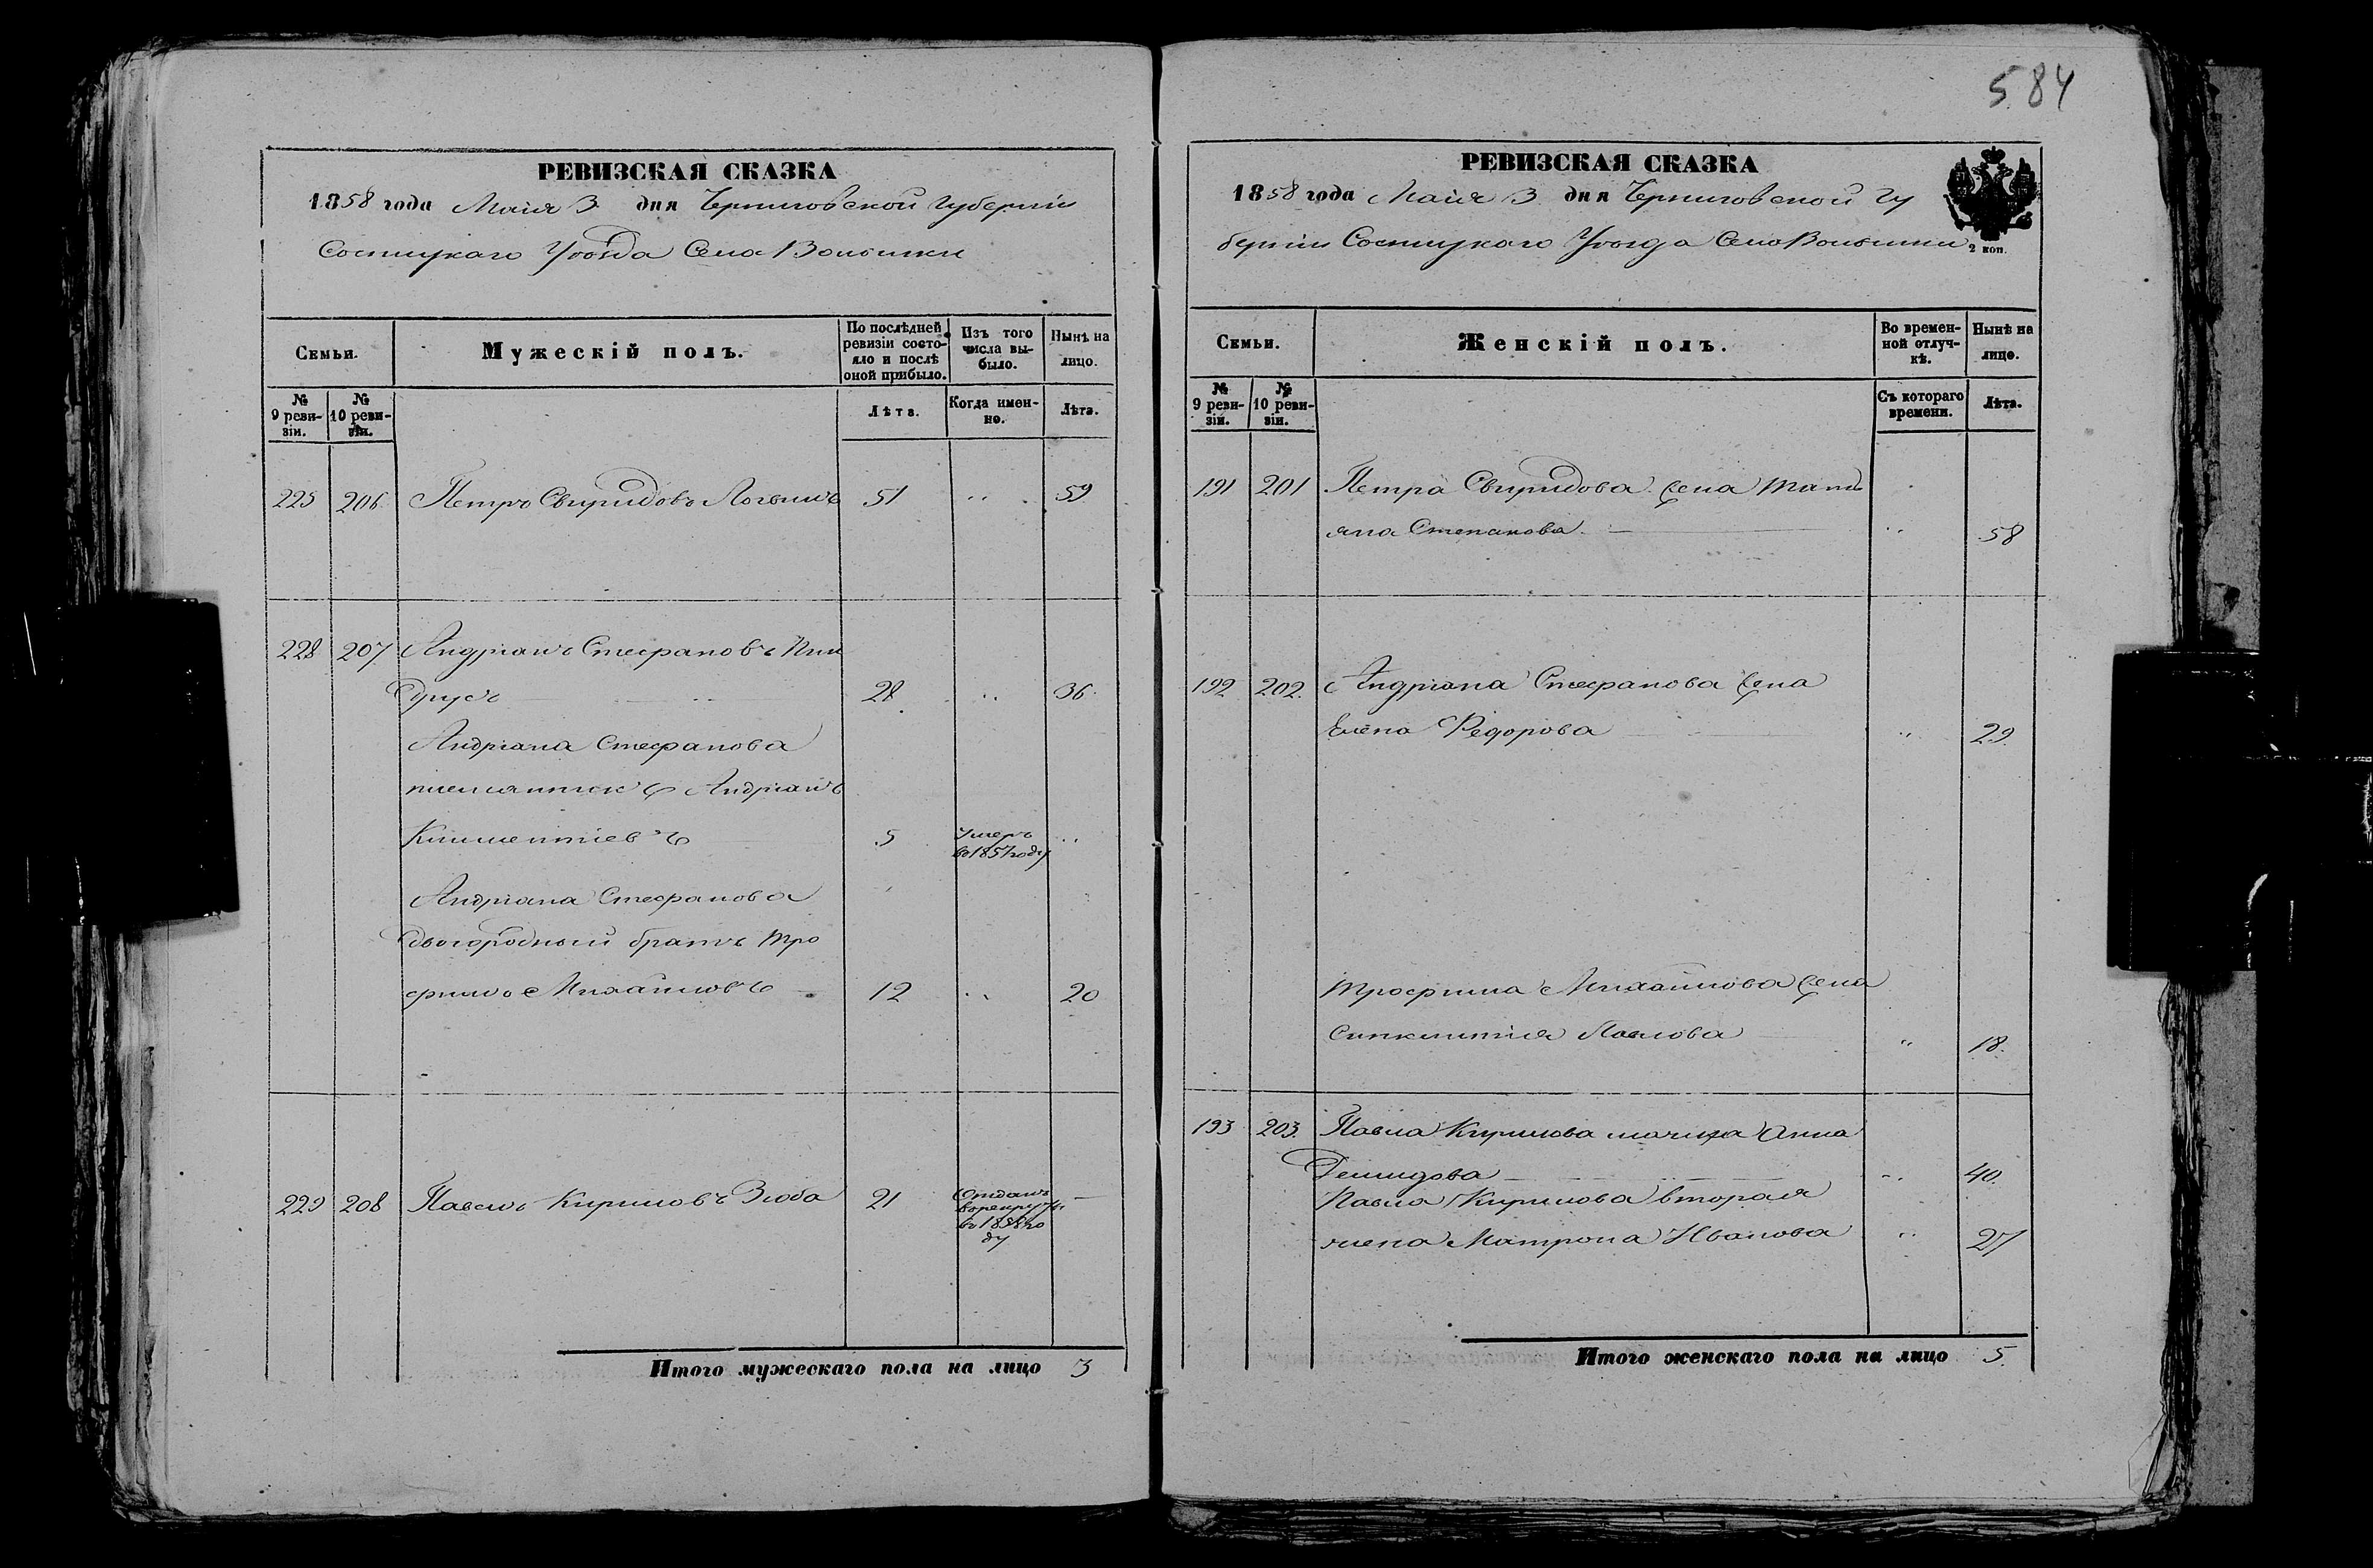 584
РЕВИЗСКАЯ СКАЗКА
1858 года Маія 3 дня Черниговской Губерніи
Сосницкаго Уѣзда Села Волынки
Семьи.
Мужескій полъ.
По послѣдней ревизіи состояло и послѣ оной прибыло.
Изъ того числа выбыло.
Нынѣ на лицо.
№ 9 ревизіи.
№ 10 ревизіи.
Лѣта.
Когда именно.
Лѣта.
225 206 Петръ Свиридовъ 51 59
228 207 Андріанъ Стефановъ
28 36
Андріана Стефанова
племянникъ Андріанъ
Климентіевъ 5 Умеръ
въ 1857 году
Андріана Стефанова
двоюродный братъ Тро
фимъ Михайловъ 12 20
229 208 Павелъ Кириловъ Зюба 21 Отданъ
въ рекруты
въ го
ду
Итого мужескаго пола на лицо 3
РЕВИЗСКАЯ СКАЗКА
1858 года Маія 3 дня Черниговской Гу
берніи Сосницкаго Уѣзда Села Волынки
2 коп.
Семьи.
Женскій полъ.
Во временной отлучкѣ.
Нынѣ на лицо.
№ 9 ревизіи.
№ 10 ревизіи.
Съ котораго времени.
Лѣта.
191 201 Петра Свиридова жена Тать
яна Степанова 58
192 202. Андріана Стефанова жена
Елена Федорова 29.
Трофима Михайлова жена
Синклитія Павлова 18.
193 203. Павла Кирилова мачиха Анна
Демидова 40.
Павла Кирилова вторая
жена Матрона Иванова 27
Итого женскаго пола на лицо 5.